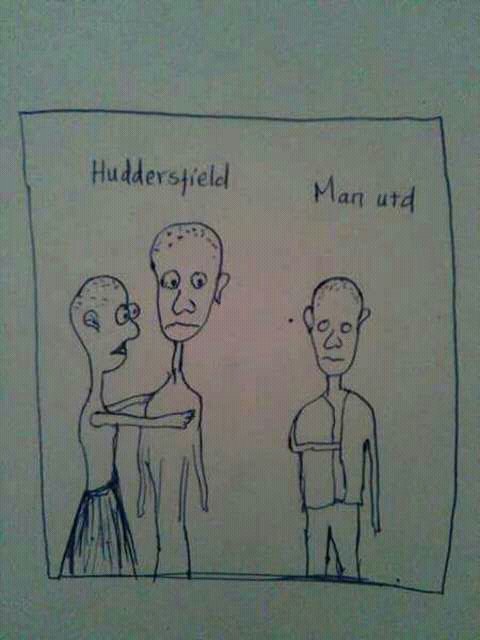 Huddersfield
Man utd